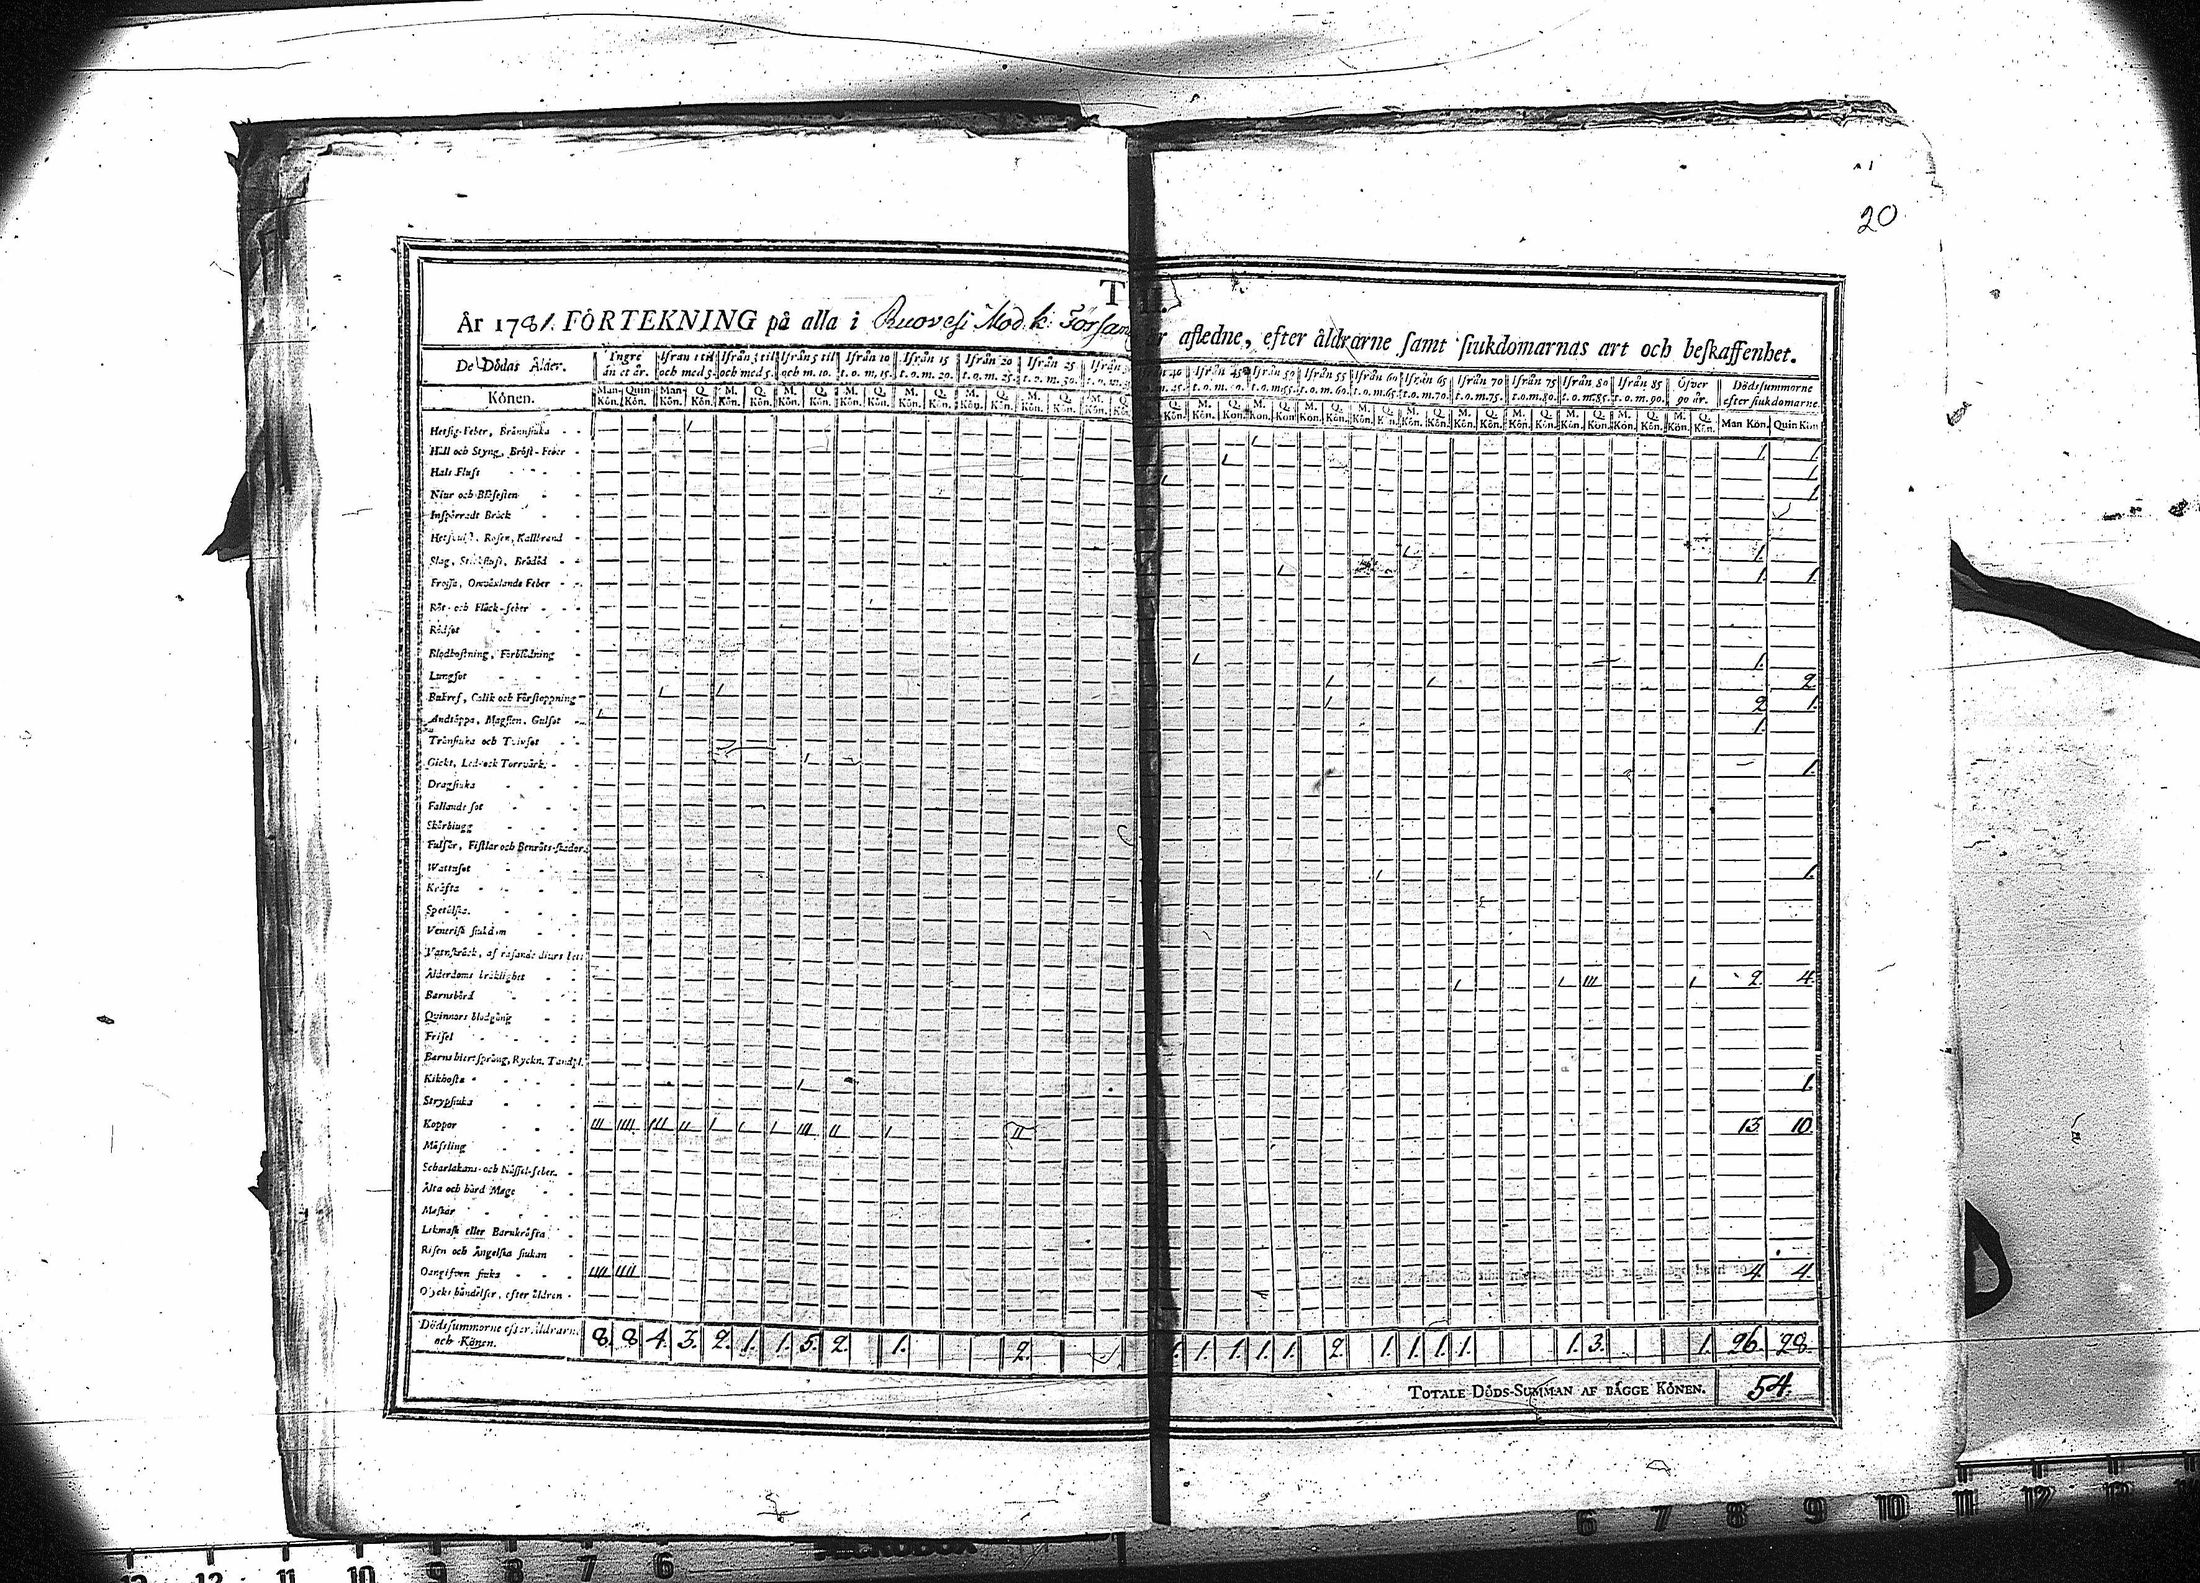 20
T III.
År 1781. FÖRTEKNING på alla i Ruovesi Mod. k: Försam aflední, efter åldrarne samt siukdomarnas art och beskaffenhet.
De Dödas Ålder. Ingre än et år. Ifrån 1 til och med 3. Ifrån 3 til och med 5. Ifrån 5 til och m. 10. Ifrån 10 t. o. m. 15. Ifrån 15 t. o. m. 20. Ifrån 20 t. o. m. 25. Ifrån 25 t. o. m. 30. Ifrån 45 Ifrån 50 t. o. m. 55. Ifrån 55 t. o. m. 60. Ifrån 60 t. o. m. 65. Ifrån 65 t. o. m. 70. Ifrån 70 t. o. m. 75. Ifrån 75 t. o. m. 80. Ifrån 80 t. o. m. 85. Ifrån 85 t. o. m. 90. Öfver 90 år. Dödssummorne efter siukdomarne.
Könen. Man Kön. Quin Kön. Man Kön. Q. Kön. M. Kön. Q. Kön. M. Kön. Q. Kön. Man Kön. Quin Kön
Hetsig-Feber, Brännsiuka 1 1.
Håll och Styng, Bröst-Feber 1
Hals Fluss 1
Niur och Blåsesten
Inspärradt Bråck
Hetsbuld, Rosen, Kallbrand 1.
Slag, Stickfluss, Brådöd 1. 1.
Frossa, Omväxlande Feber
Röt- och Fläck-feber
Rödsot
Blodhostning, Förblödning 1.
Lungsot 2
Bukref, Colik och Förstoppning 2 1.
Andtäppa, Magsten, Gulsot 1.
Trånsiuka och Tvinsot
Gickt, Led- och Torrvärk 1.
Dragsiuka
Fallande sot
Skörbiugg
Fulsår, Fistlar och Benröts-skador
Wattusot 1.
Kräfta
Spetälska.
Venerisk siukdom
Vatnskräck, af rasande diurs bett
Ålderdoms bräklighet 2. 4.
Barnsbörd
Qvinnors blodgång
Frisel
Barns hiertsprång, Ryckn. Tandspl.
Kikhosta 1.
Strypsiuka
Koppor 13. 10.
Mässling
Scharlakans- och Nässel-feber.
Älta och hård Mage
Maskar
Likmask eller Barnkräfta
Risen och Ängelska siukan
Oangifven siuka 4. 4.
Olycks händelser, efter åldren
Dödssummorne efter åldrarne och Könen. 8. 8 4. 3. 2. 1. 1. 5. 2. 1. 2. 1. 1. 1. 1. 2. 1. 1. 1. 1. 1. 3. 1. 26. 28.
TOTALE DÖDS-SUMMAN AF BÄGGE KÖNEN. 54.